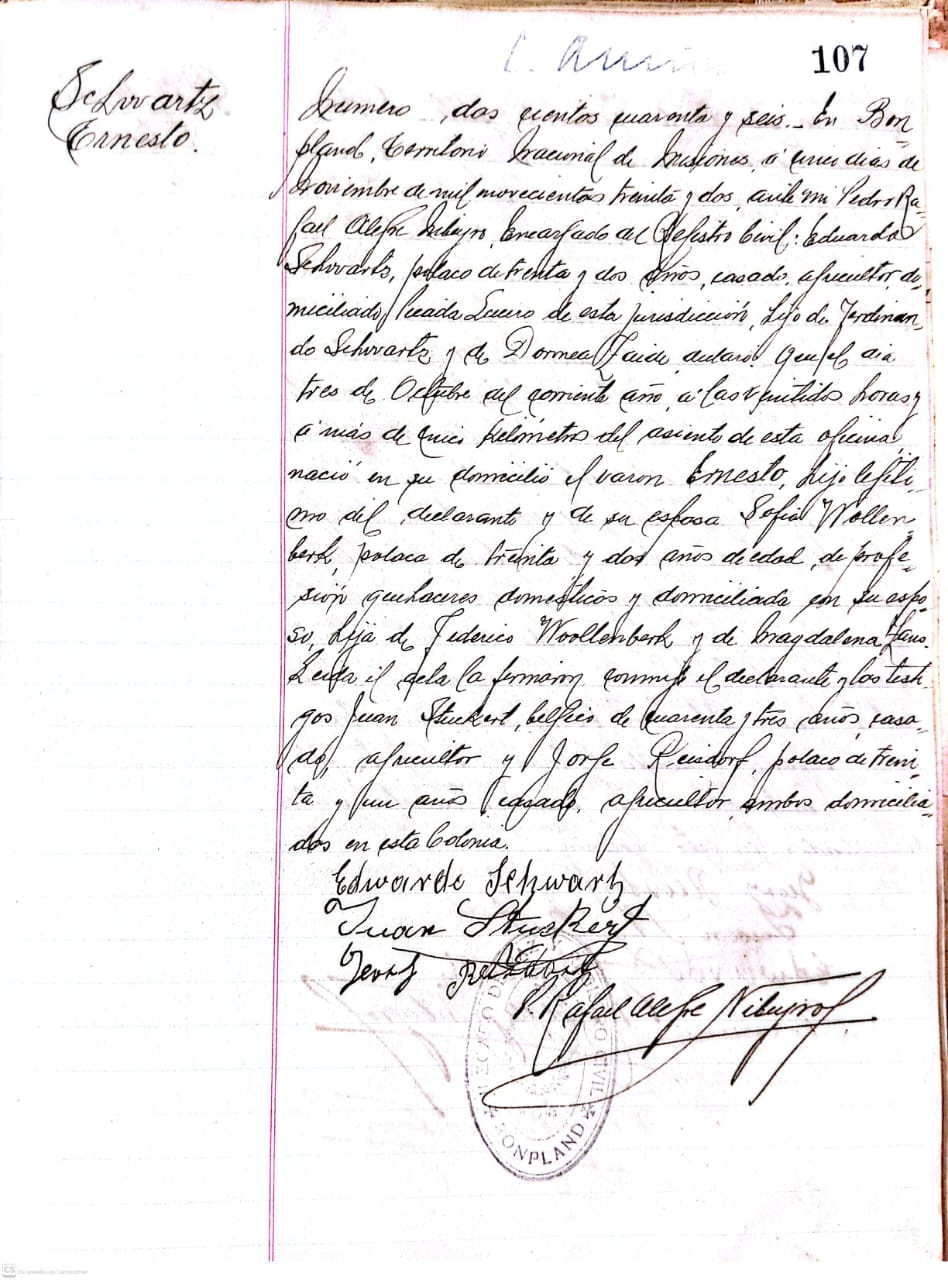 107
Schvartz
Ernesto.
Numero dos cientos cuarenta y seis. En Bon-
pland, Territorio Nacional de Misiones, á cinco dias de
Noviembre de mil novecientos treinta y dos, ante mi Pedro Ra-
fael Alegre Nibeyro, Encargado del Registro Civil: Eduardo
Schvartz, polaco de treinta y dos años, casado, agricultor, do-
miciliado, picada Lucero de esta jurisdicción, hijo de Ferdinan-
do Schvartz y de declaró: Que el dia
tres de Octubre del corriente año, á las veintidos horas y
á más de cinco kilómetros del asiento de esta oficina
nació en su domicilio el varon Ernesto, hijo legiti-
mo del declarante y de su esposa Sofia Wollen-
berk, polaca de treinta y dos años de edad, de profe-
sión quehaceres domésticos y domiciliada con su espo-
so, hija de Federico Woollenberk y de Magdalena
Leida el acta la firmaron conmigo el declarante y los testi-
gos Juan Stuckert, belgico de cuarenta y tres años, casa-
do, agricultor y Jorge Reisdorf, polaco de trein-
ta y un años, casado, agricultor, ambos domicilia-
dos en esta Colonia.
Edwarde Schwartz
Juan Stuckert
P. Rafael Alegre Nibeyro
BONPLAND